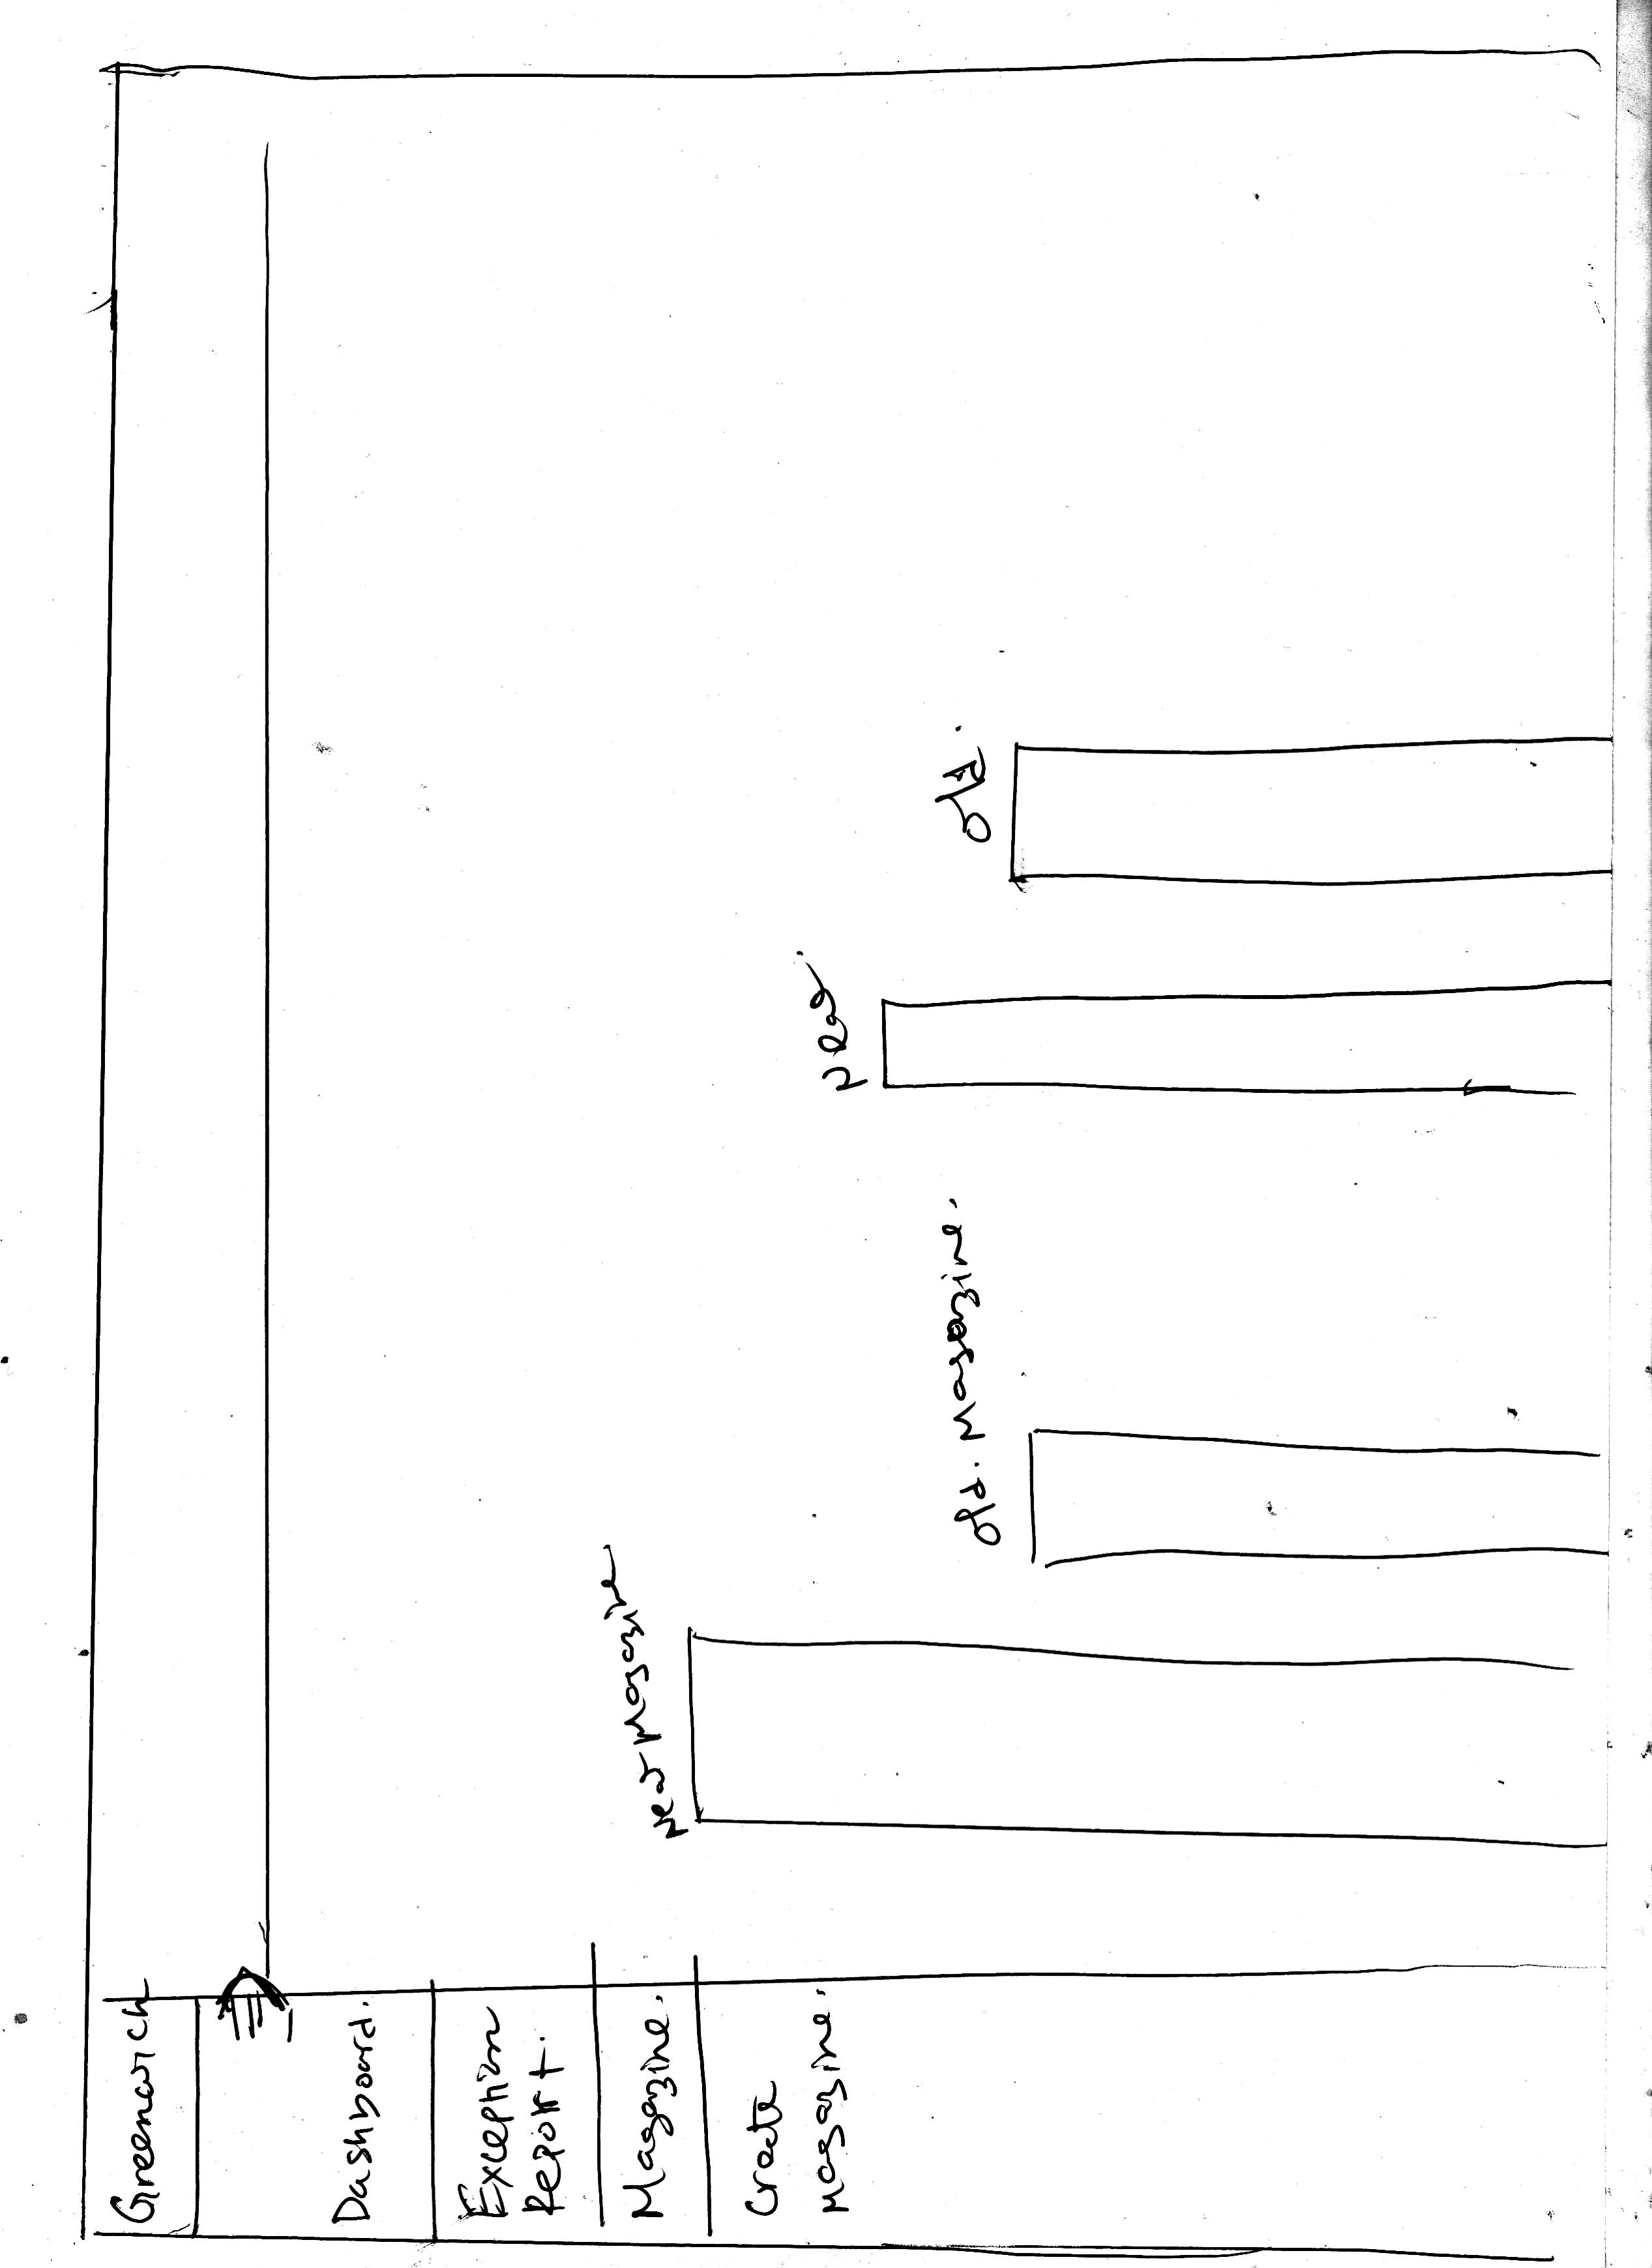 Greenwich
Dashboard.
Exception
Report.
Magazine.
Create
Magazine.
New Magazine
Old. Magazine.
New.
Old.